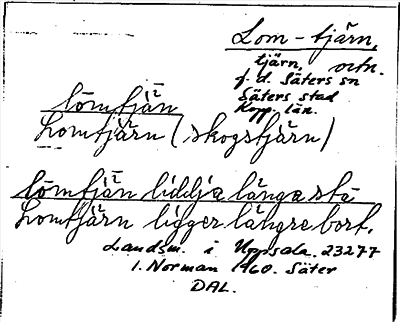 Lom-tjärn,
tjärn, ortn.
f. d. Säters sn
Säters stad
Kopp. län.
lömtjän
Lomtjärn (skogstjärn)
lömtjän liddja länga stä
Lomtjärn ligger längre bort.
Landsm. i Uppsala. 23277
I. Norman 1960. Säter
DAL.